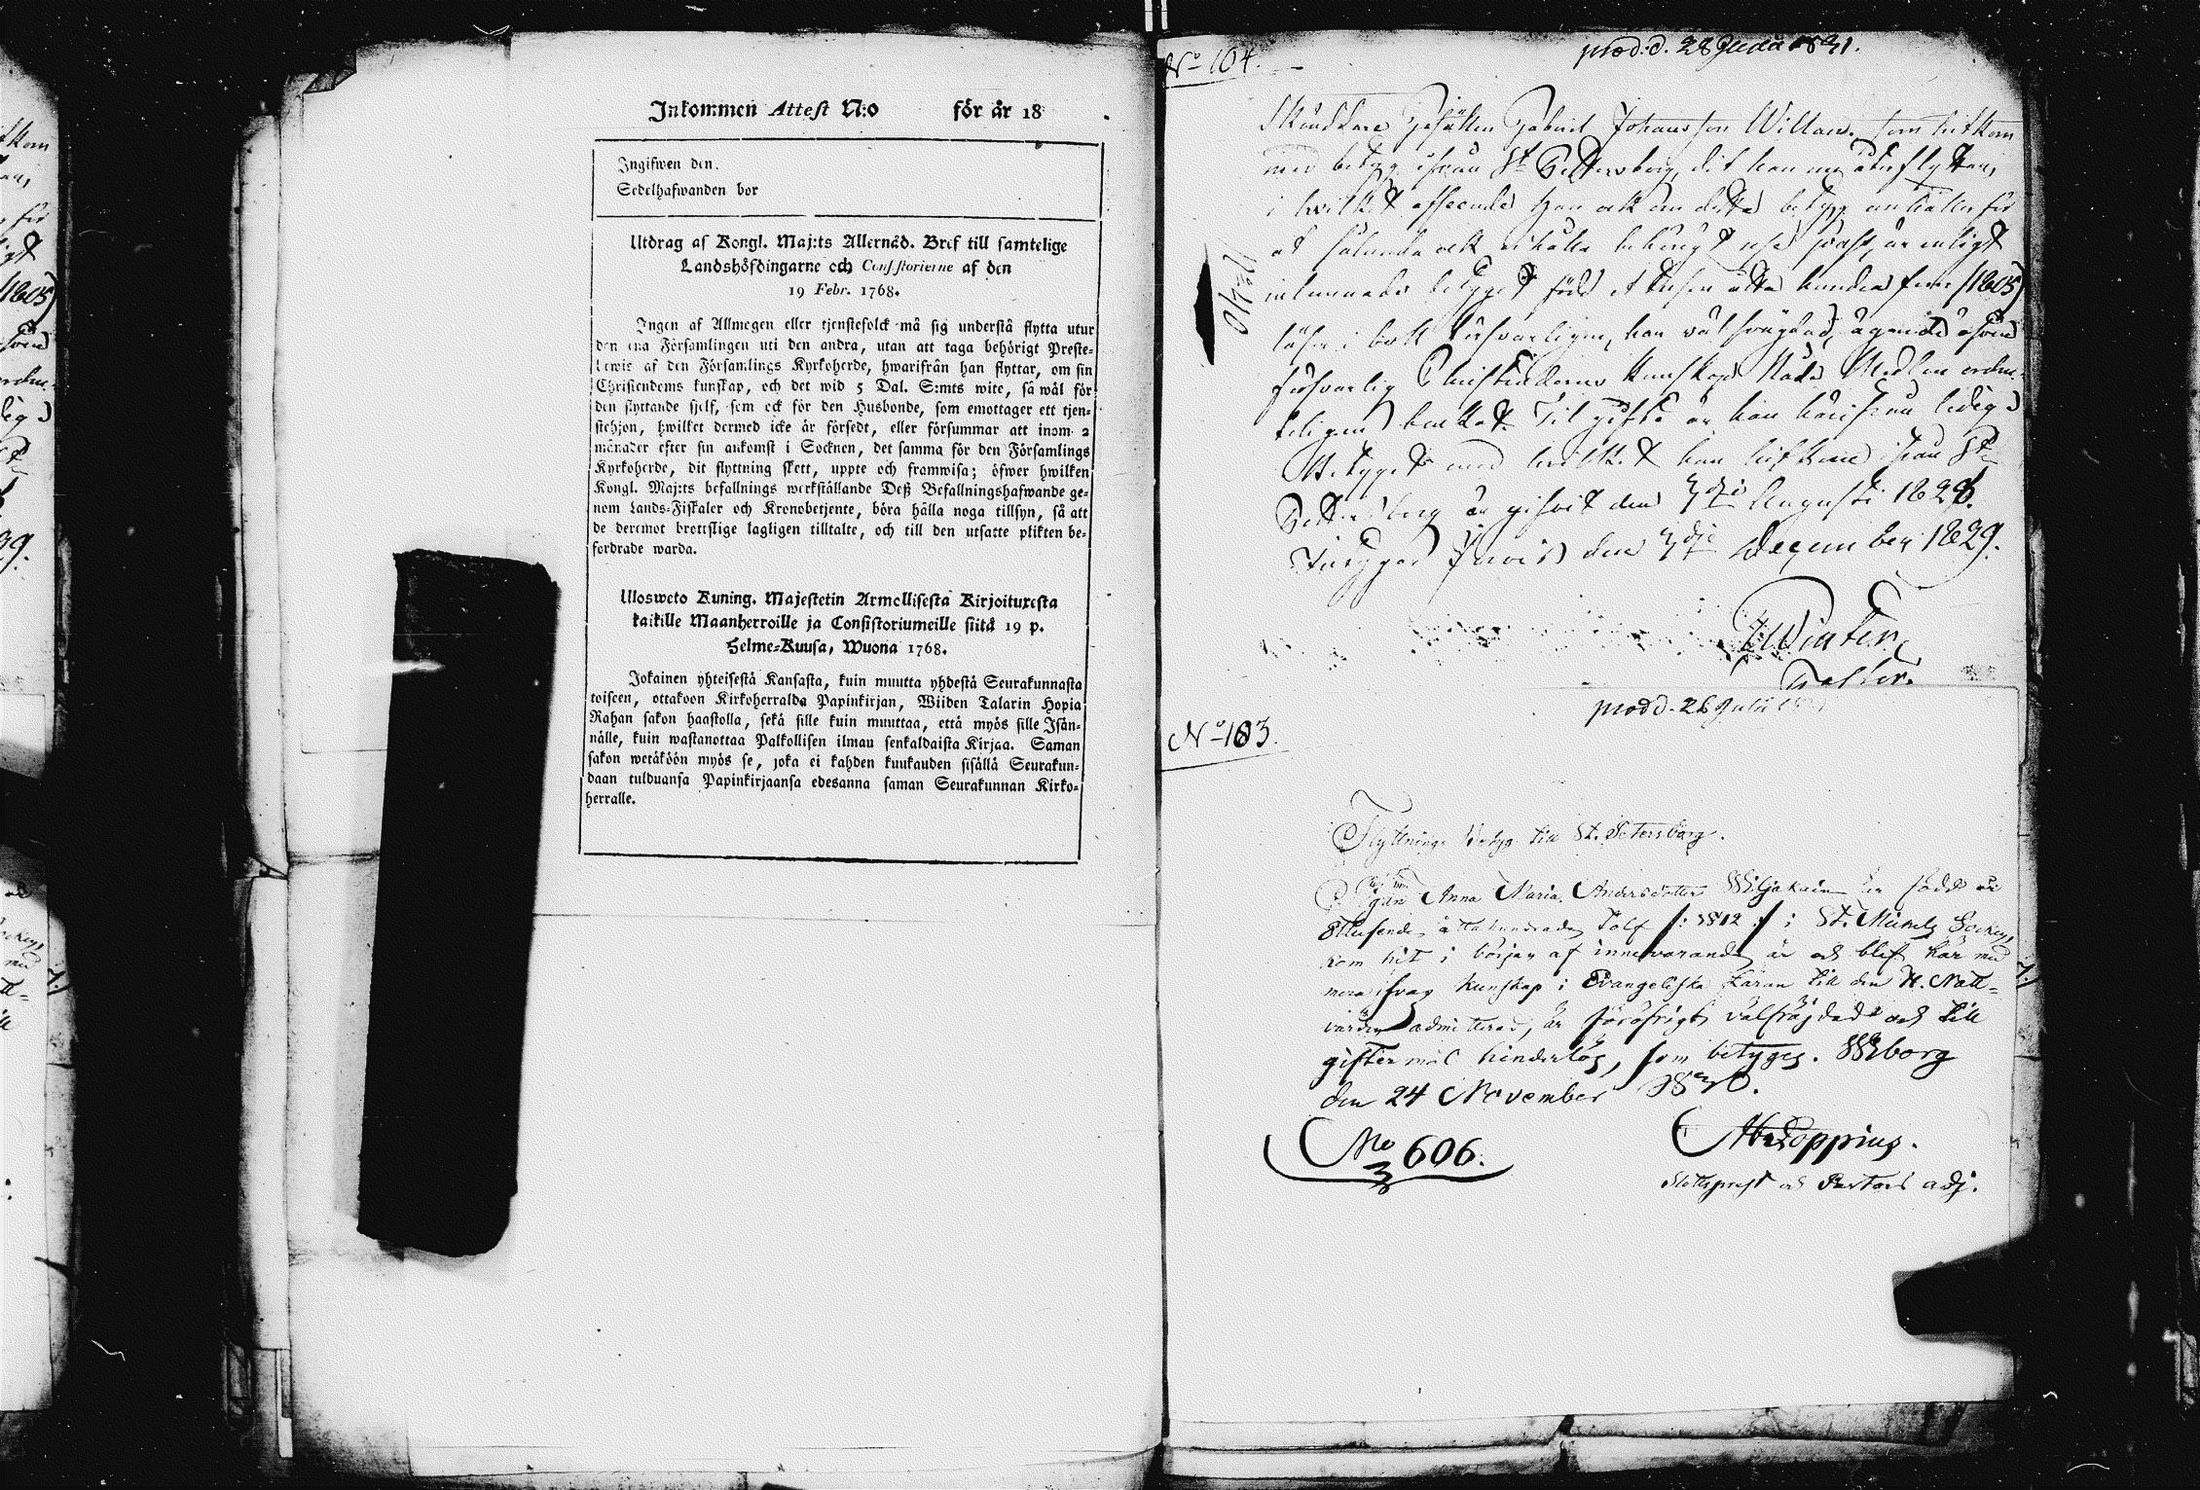 Inkommen Attest N:o för år 18
Ingifwen den.
Sedelhafwanden bor
Utdrag af Kongl. Maj:ts Allernåd. Bref till samtelige
Landshöfdingarne och Consistorierne af den
19 Febr. 1768.
Ingen af Allmogen eller tjenstefolck må sig understå flytta utur
den ena Församlingen uti den andra, utan att taga behörigt Preste-
bewis af den Församlings Kyrkoherde, hwarifrån han flyttar, om sin
Christendoms kunskap, och det wid 5 Dal. S:mts wite, så wäl för
den flyttande sjelf, som ock för den Husbonde, som emottager ett tjen-
stehjon, hwilket dermed icke är försedt, eller försummar att inom 2
månader efter sin ankomst i Socknen, det samma för den Församlings
Kyrkoherde, dit flyttning skett, uppte och framwisa; öfwer hwilken
Kongl. Maj:ts befallnings werkställande Deß Befallningshafwande ge-
nom Lands-Fiskaler och Kronobetjente, böra hålla noga tillsyn, så att
de deremot brottslige lagligen tilltalte, och till den utsatte plikten be-
fordrade warda.
Ulosweto Kuning. Majestetin Armollisesta Kirjoituxesta
kaikille Maanherroille ja Consistoriumeille siitä 19 p.
Helme-Kuusa, Wuona 1768.
Jokainen yhteisestä Kansasta, kuin muutta yhdestä Seurakunnasta
toiseen, ottakoon Kirkoherralda Papinkirjan, Wiiden Talarin Hopia
Rahan sakon haastolla, sekä sille kuin muuttaa, että myös sille Isän-
nälle, kuin wastanottaa Palkollisen ilman senkaldaista Kirjaa. Saman
sakon wetäköön myös se, joka ei kahden kuukauden sisällä Seurakun-
daan tulduansa Papinkirjaansa edesanna saman Seurakunnan Kirko-
herralle.
N:o 104.
prod. d. 28 Julii 1831.
Skräddare Gesällen Gabriel Johansson Willan, som hitkom
med betyg ifrån St Pettersborg, dit han nu återflyttar,
i hvilket afseende han ock om detta betyg anhåller för
inlemnade betyget född Ettusen åtta hundra fem (1805)
läser i bok försvarligen, har välfrägdad, ägande äfven
försvarlig Christendoms kunskap Nåde Medlen orden-
teligen brukat. Til gifte är han härifrån ledig
Betyget med hvilket han hitkom ifrån St
Pettersborg är gifvit den Augusti 1828.
den December 1829.
Winter
Pastor.
N:o 103.
prod d. 28 Julii
Flyttnings Betyg till St. Petersborg.
Pigan Anna Maria Andersdotter Wiljakain är född år
Ettusende åttahundrade tolf /: 1812 :/ i St. Michels Socken,
kom hit i början af innevarande år och blef här med
kunskap i Evangeliska Läran till den H. Natt-
varden admitterad, är föröfrigt välfräjdad och till
giftermål hinderlös, som betygas. Wiborg
den 24 November 1830.
No 606.
Hoppius.
Slottsprest och Pastors adj.